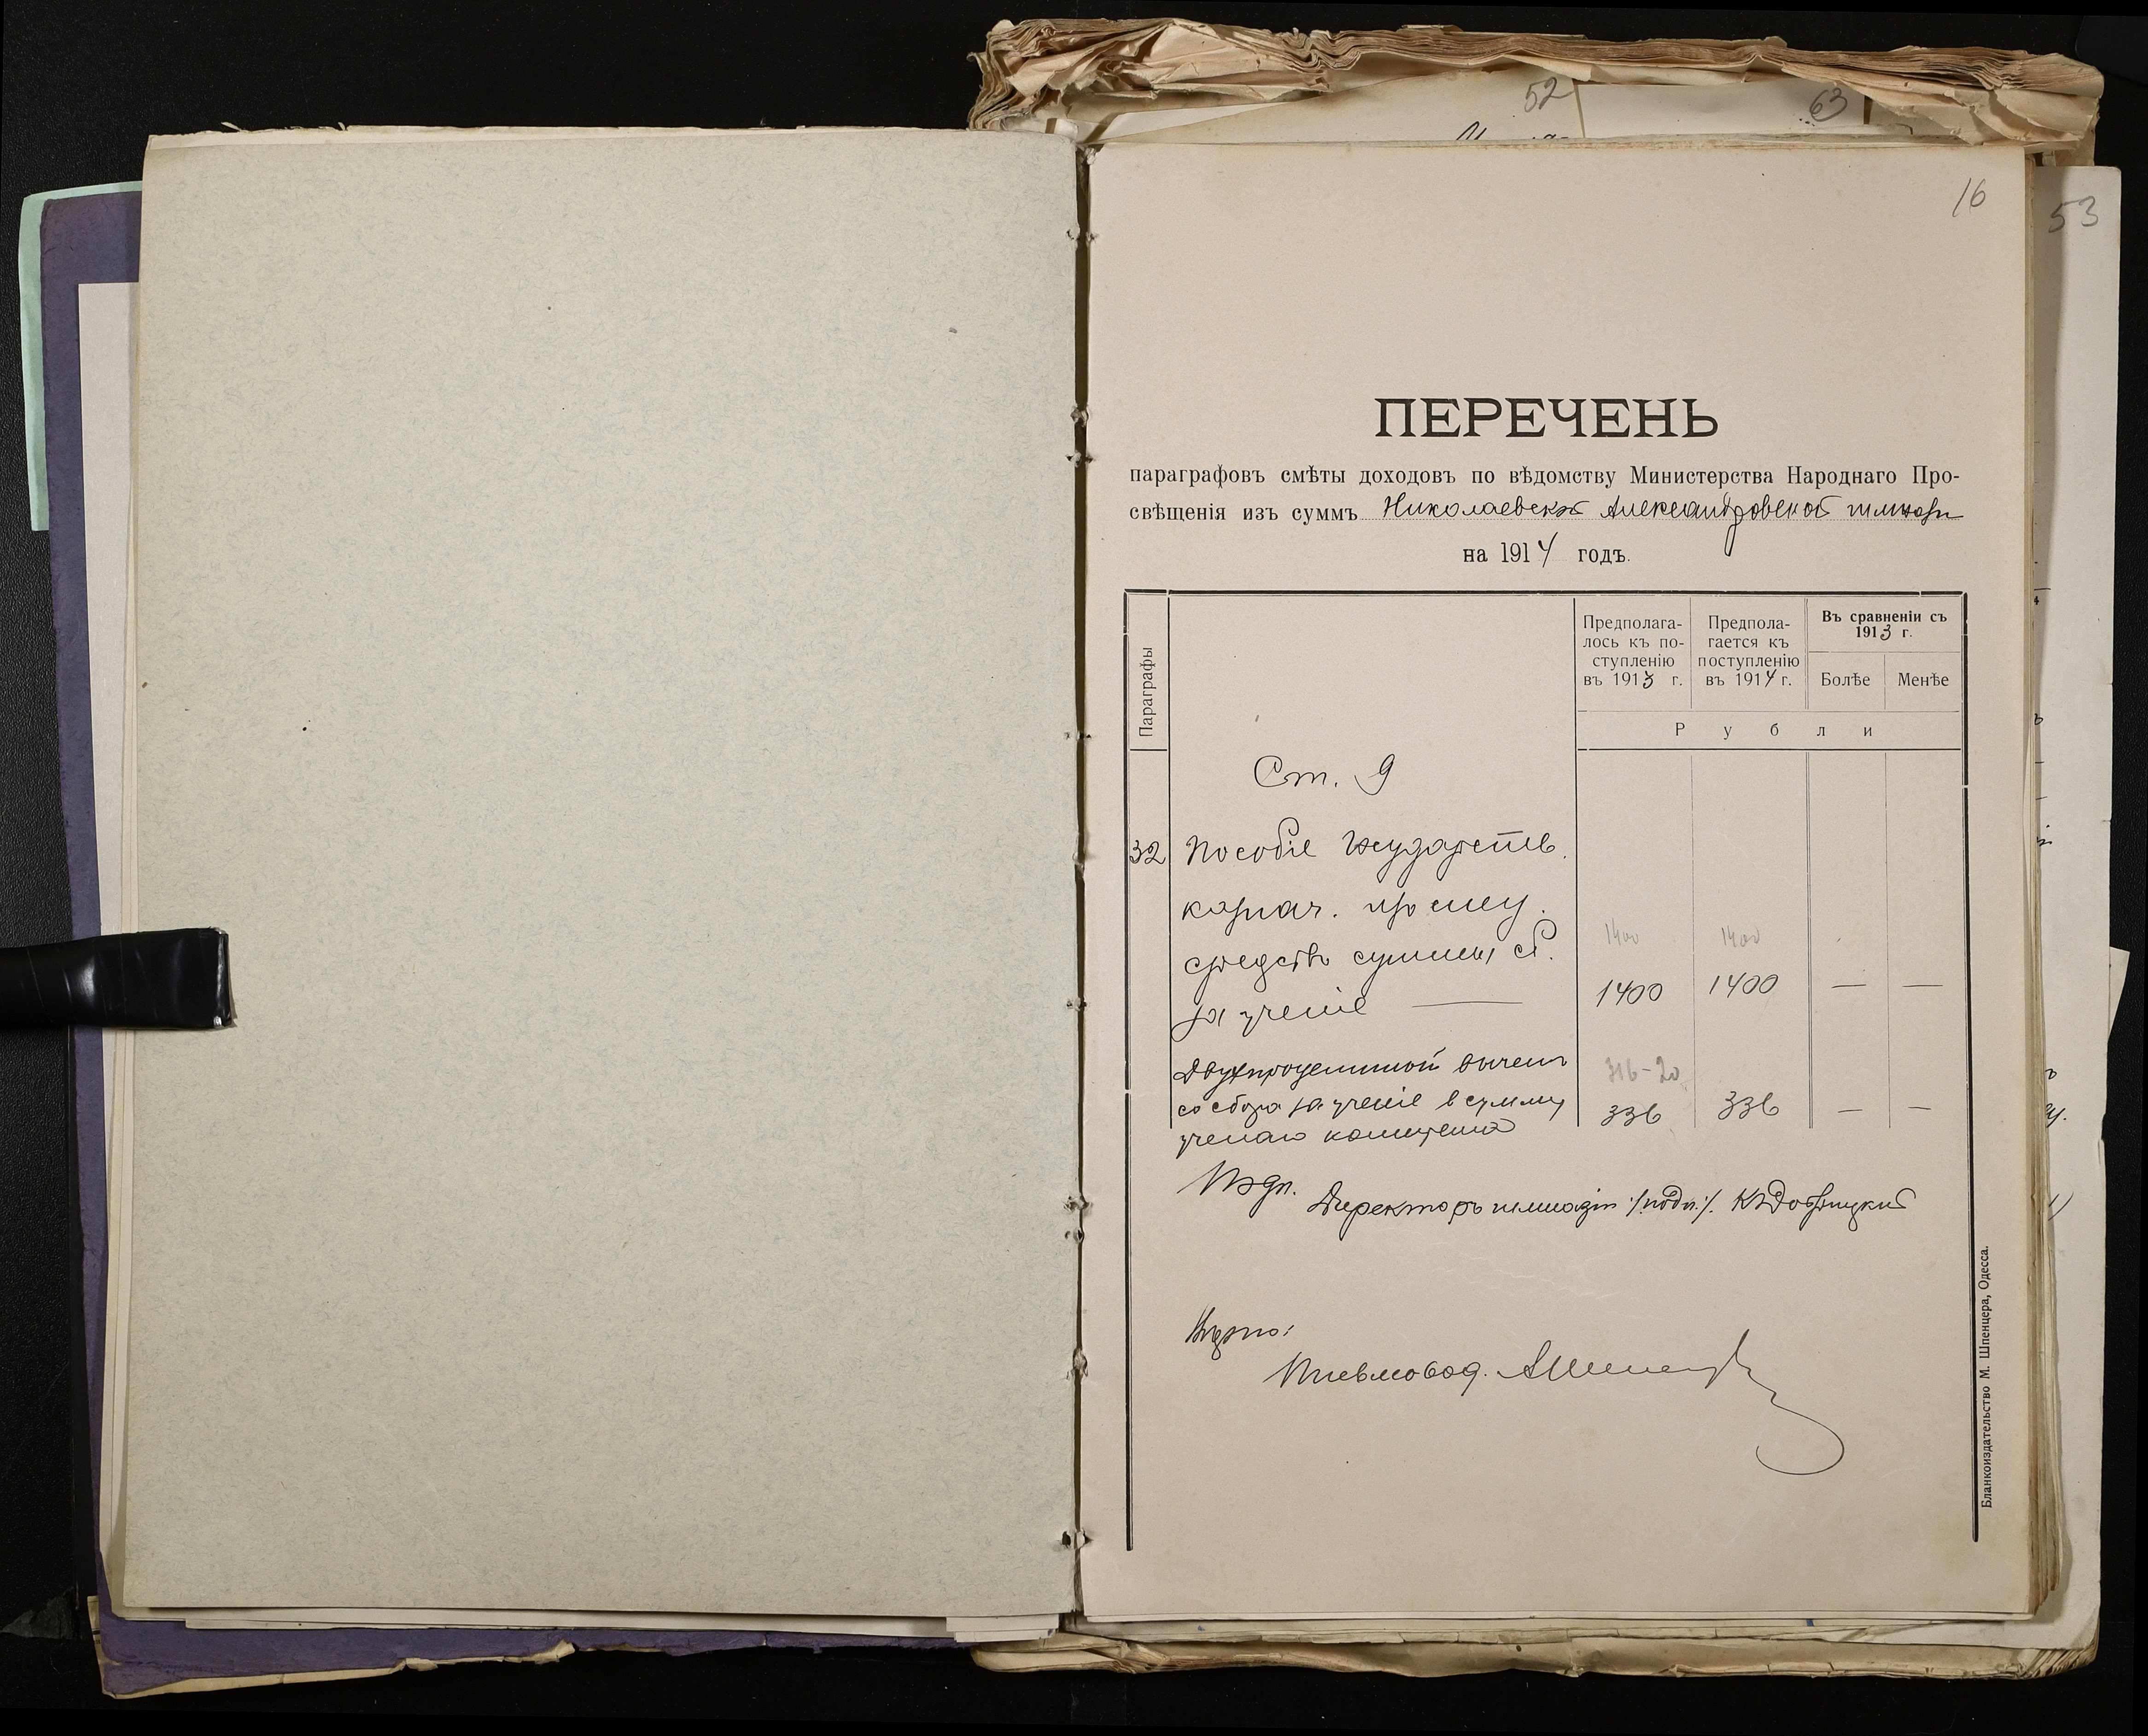 52
63
16
53
ПЕРЕЧЕНЬ
параграфовъ смѣты доходовъ по вѣдомству Министерства Народнаго Про-
свѣщенія изъ суммъ Николаевской Александровской гимназіи
на 1914 годъ.
Параграфы
Предполага-
лось къ по-
ступленію
въ 1913 г.
Предпола-
гается къ
поступленію
въ 1914 г.
Въ сравненіи съ
1913 г.
Болѣе
Менѣе
Рубли
Ст. 9
32 Пособіе государств.
казнач.
средствъ суммы сб.
1400 1400
за ученіе — 1400 1400 — —
Двухпроцентный вычетъ 316-20
со сбора за ученіе въ сумму 336 336 — —
ученаго комитета
Подп.
Директоръ гимназіи /:подп:/.
Вѣрно:
Письмовод.
Бланкоиздательство М. Шпенцера, Одесса.